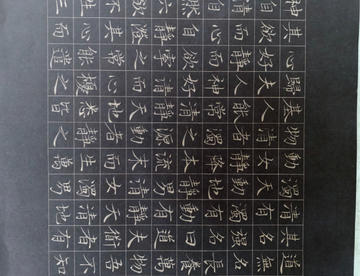 道無名長養萬物吾不知
其名強名曰道夫道者有
清有濁有動有靜天清地
濁天動地靜男清女濁男
動女靜降本流末而生萬
物清者濁之源動者靜之
基人能常清靜天地悉皆
歸夫人神好清而心擾之
心好靜而欲牽之常能遣
其欲而心自靜澄其心而
神自清自然六欲不生三